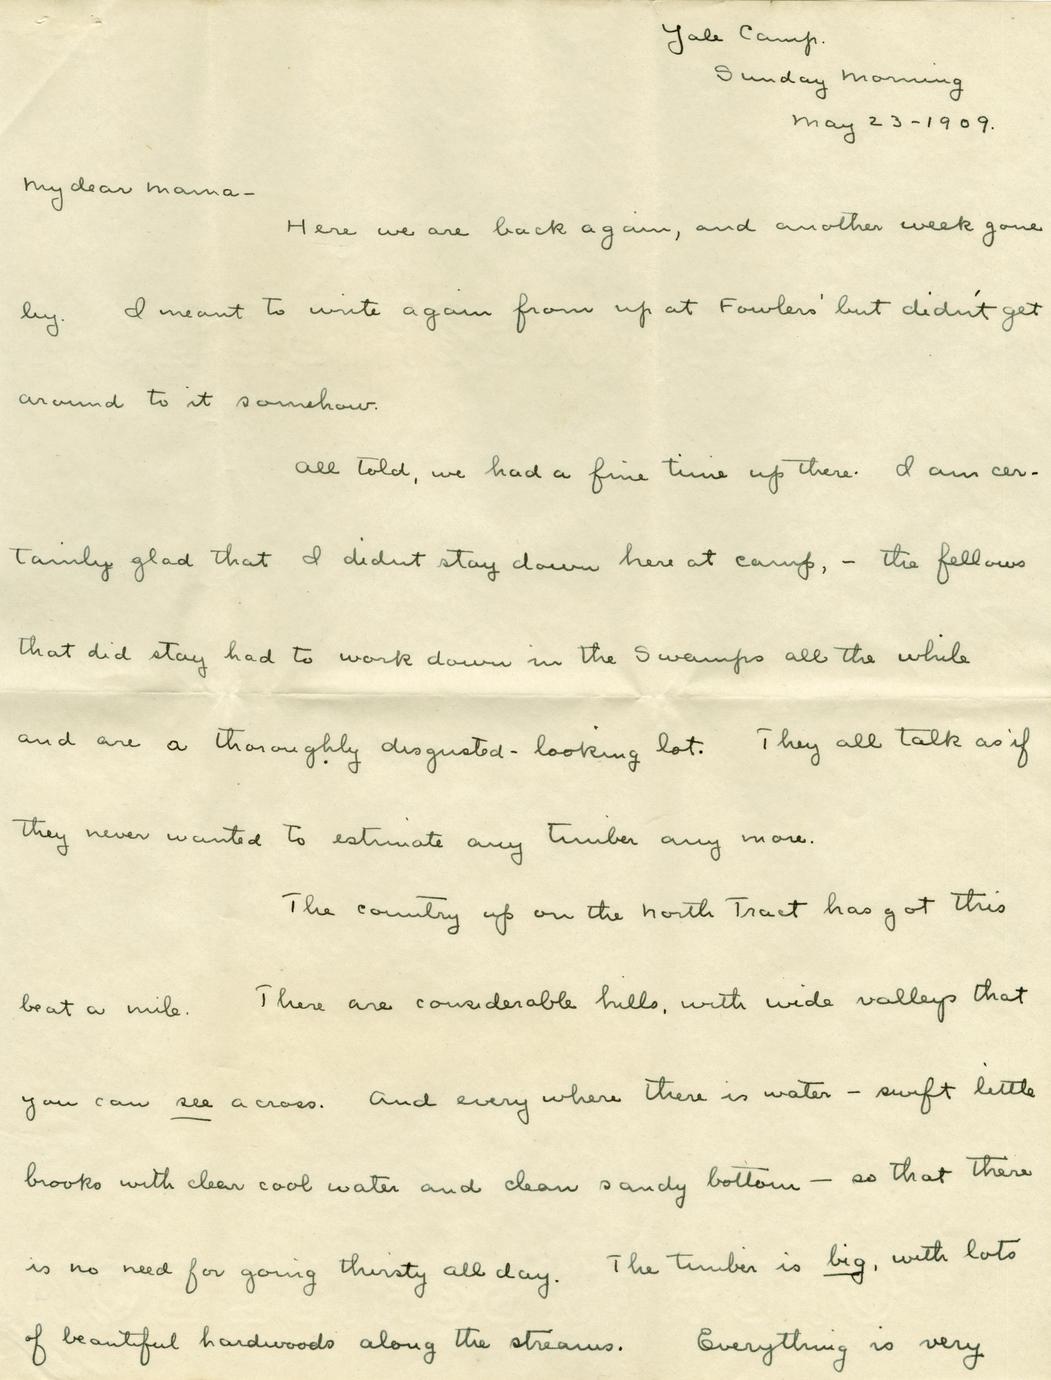 Yale Camp.
Sunday Morning
May 23-1909.
My dear Mama-
Here we are back again, and another week gone
by. I meant to write again from up at Fowlers' but didn't get
around to it somehow.
All told, we had a fine time up there. I am cer-
tainly glad that I didnt stay down here at camp, - the fellows
that did stay had to work down in the Swamps all the while
and are a thoroughly disgusted-looking lot. They all talk as if
they never wanted to estimate any timber any more.
The country up on the North Tract has got this
beat a mile. There are considerable hills, with wide valleys that
you can see across. And every where there is water - swift little
brooks with clear cool water and clean sandy bottom - so that there
is no need for going thirsty all day. The timber is big, with lots
of beautiful hardwoods along the streams. Everything is very